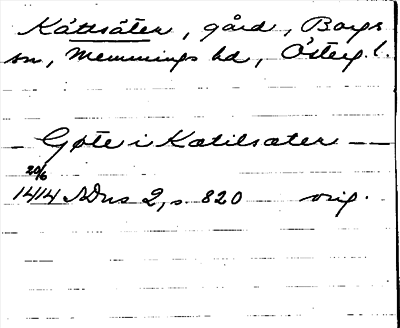 Kättsäter, gård, Borgs
sn, Memmings hd, Österg. l.
— Gøte i Kætilsæter —
20/6
1414 SDns 2, s. 820 orig.